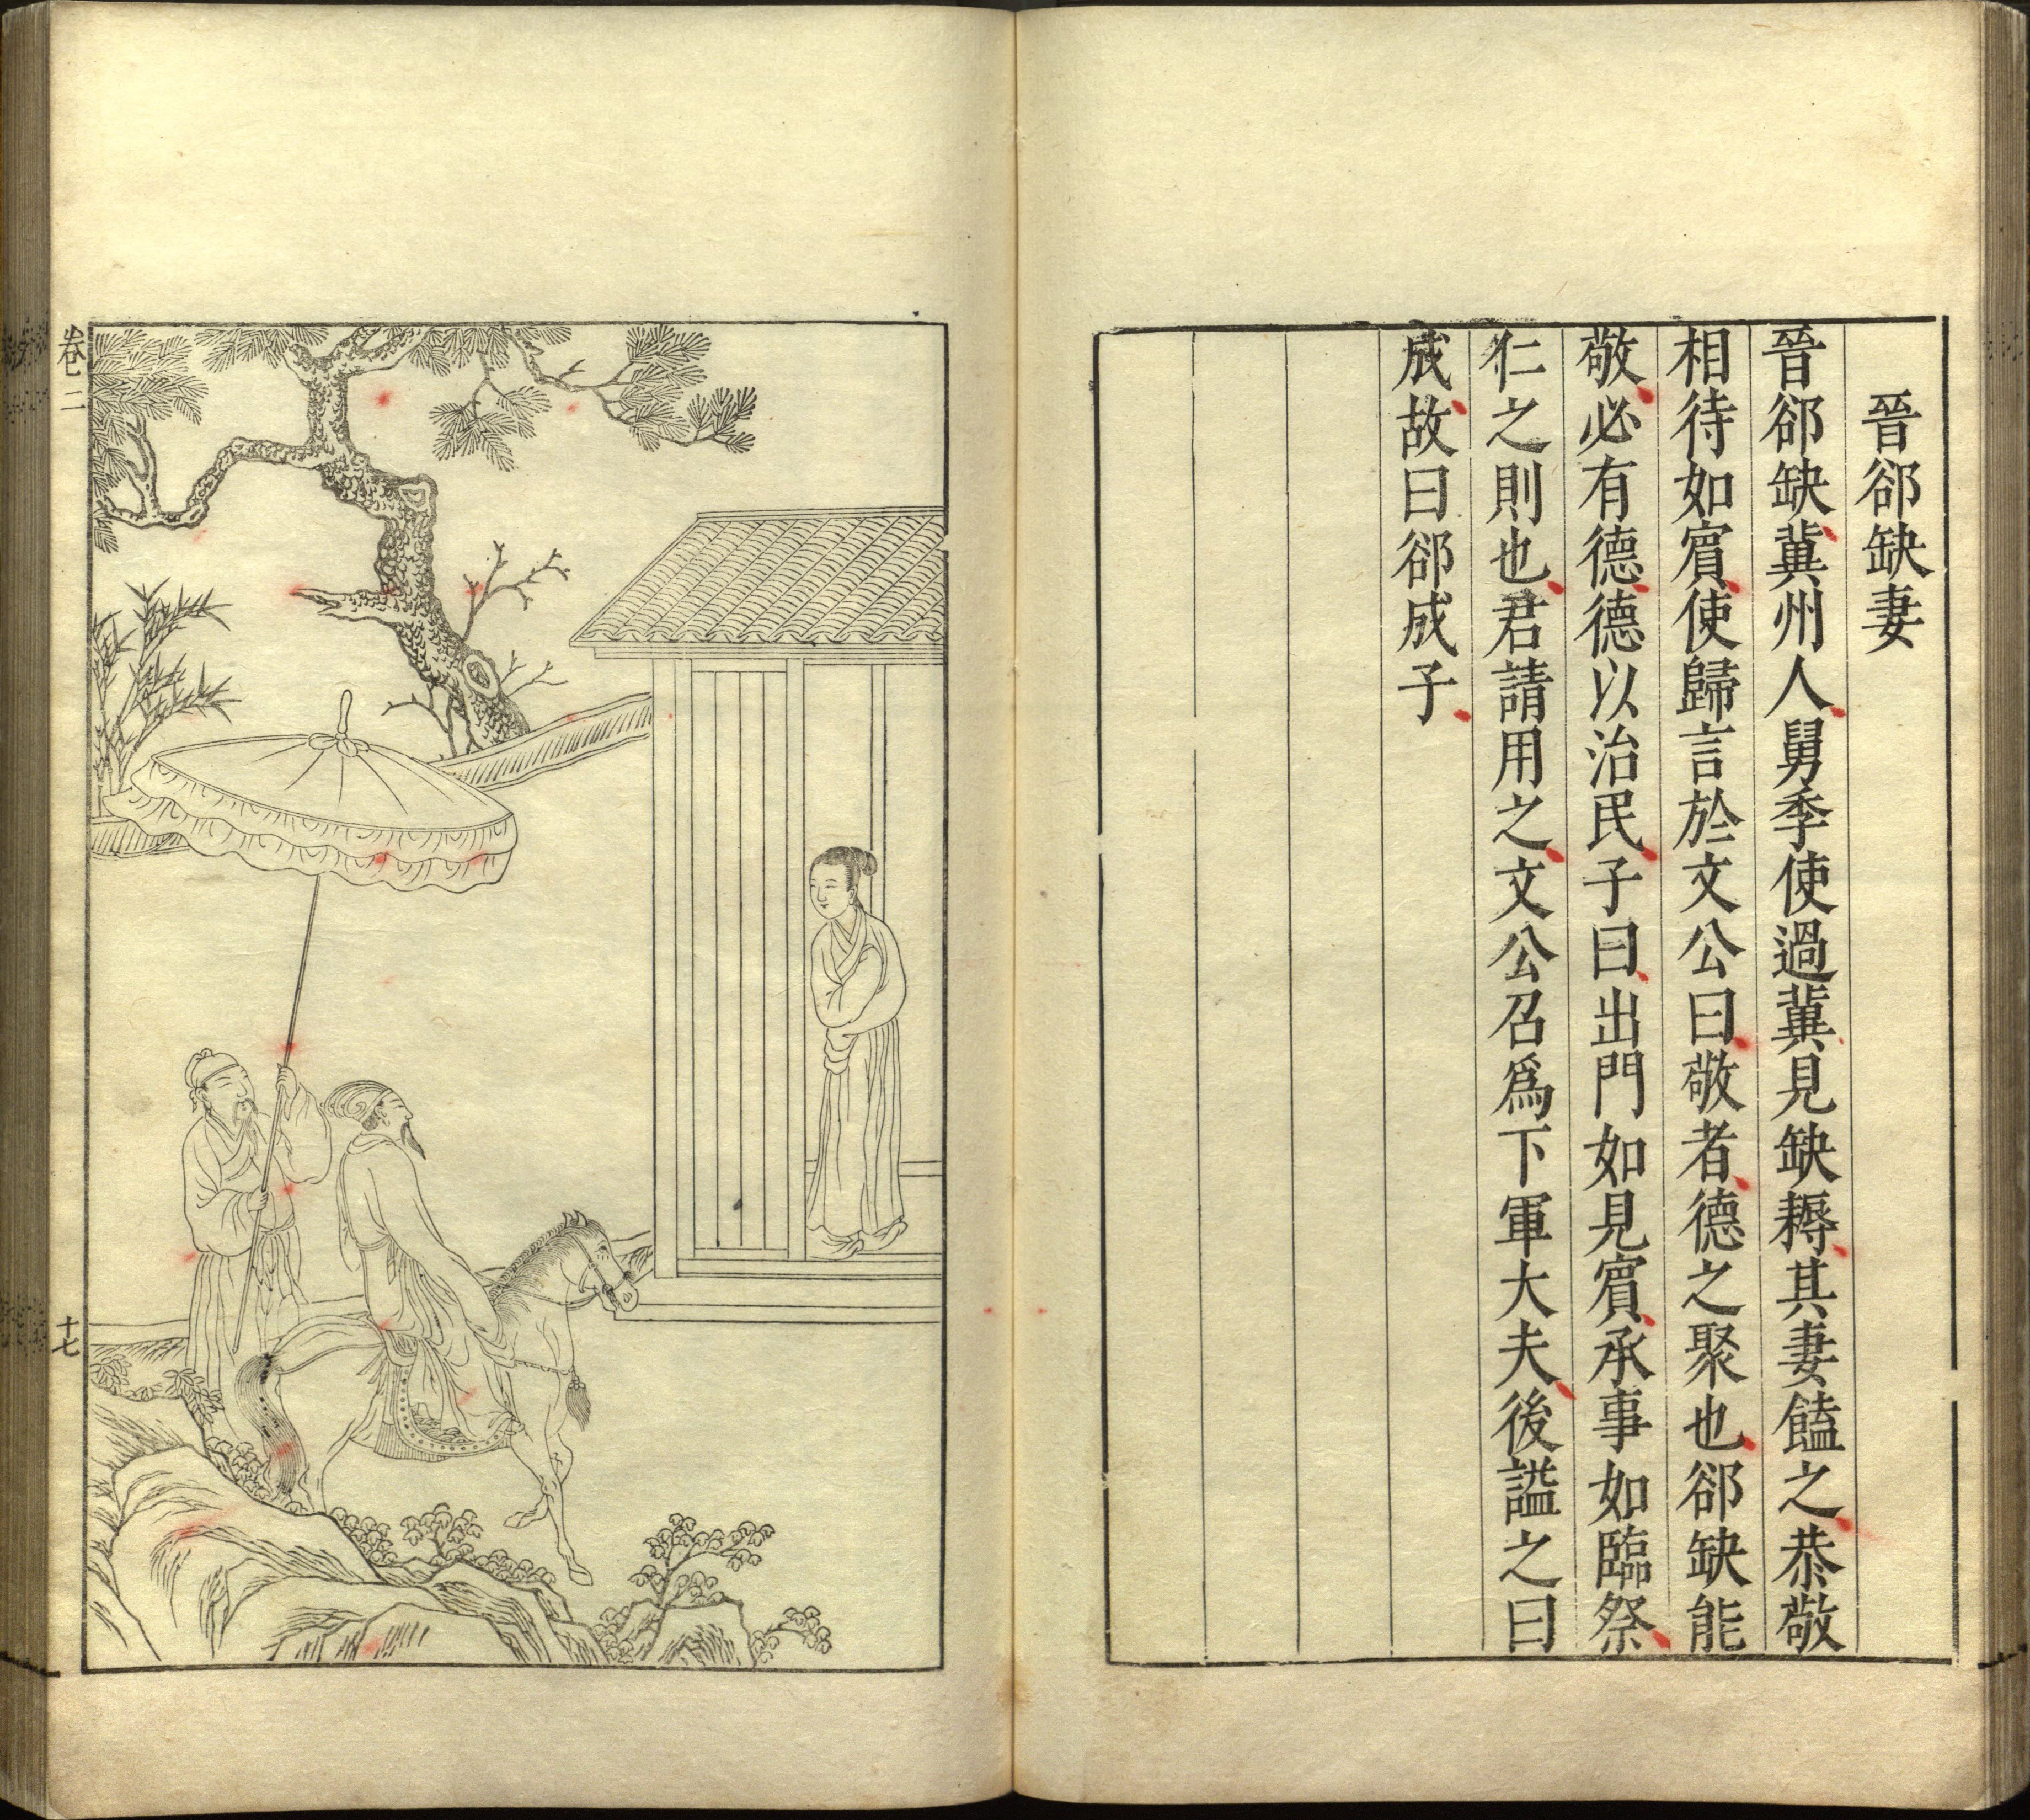 晉郤缺妻
晉郤缺兾州人舅季使過兾見缺耨其妻饁之恭敬
相待如賓使歸言於文公曰敬者德之聚也郤缺能
敬必有德德以治民子曰出門如見賓承事如臨祭
仁之則也君請用之文公召爲下軍大夫後謚之曰
成故曰郤成子
卷二
十七